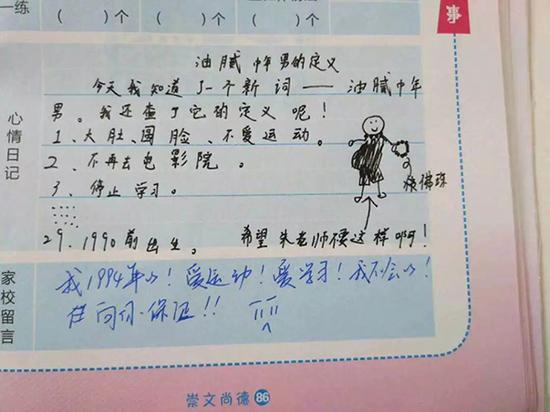 一练
( )个 ( )个 ( )个
油腻中年男的定义
今天我知道了一个新词——油腻中年
男。我还查了它的定义呢！
1、大肚、圆脸、不爱运动。
2、不再去电影院。
3、停止学习。
佛珠
29、1990前出生。 希望朱老师不要这样啊！
心情日记
我1994年的！爱运动！爱学习！我不会的！
向你保证！！
家校留言
崇文尚德 86